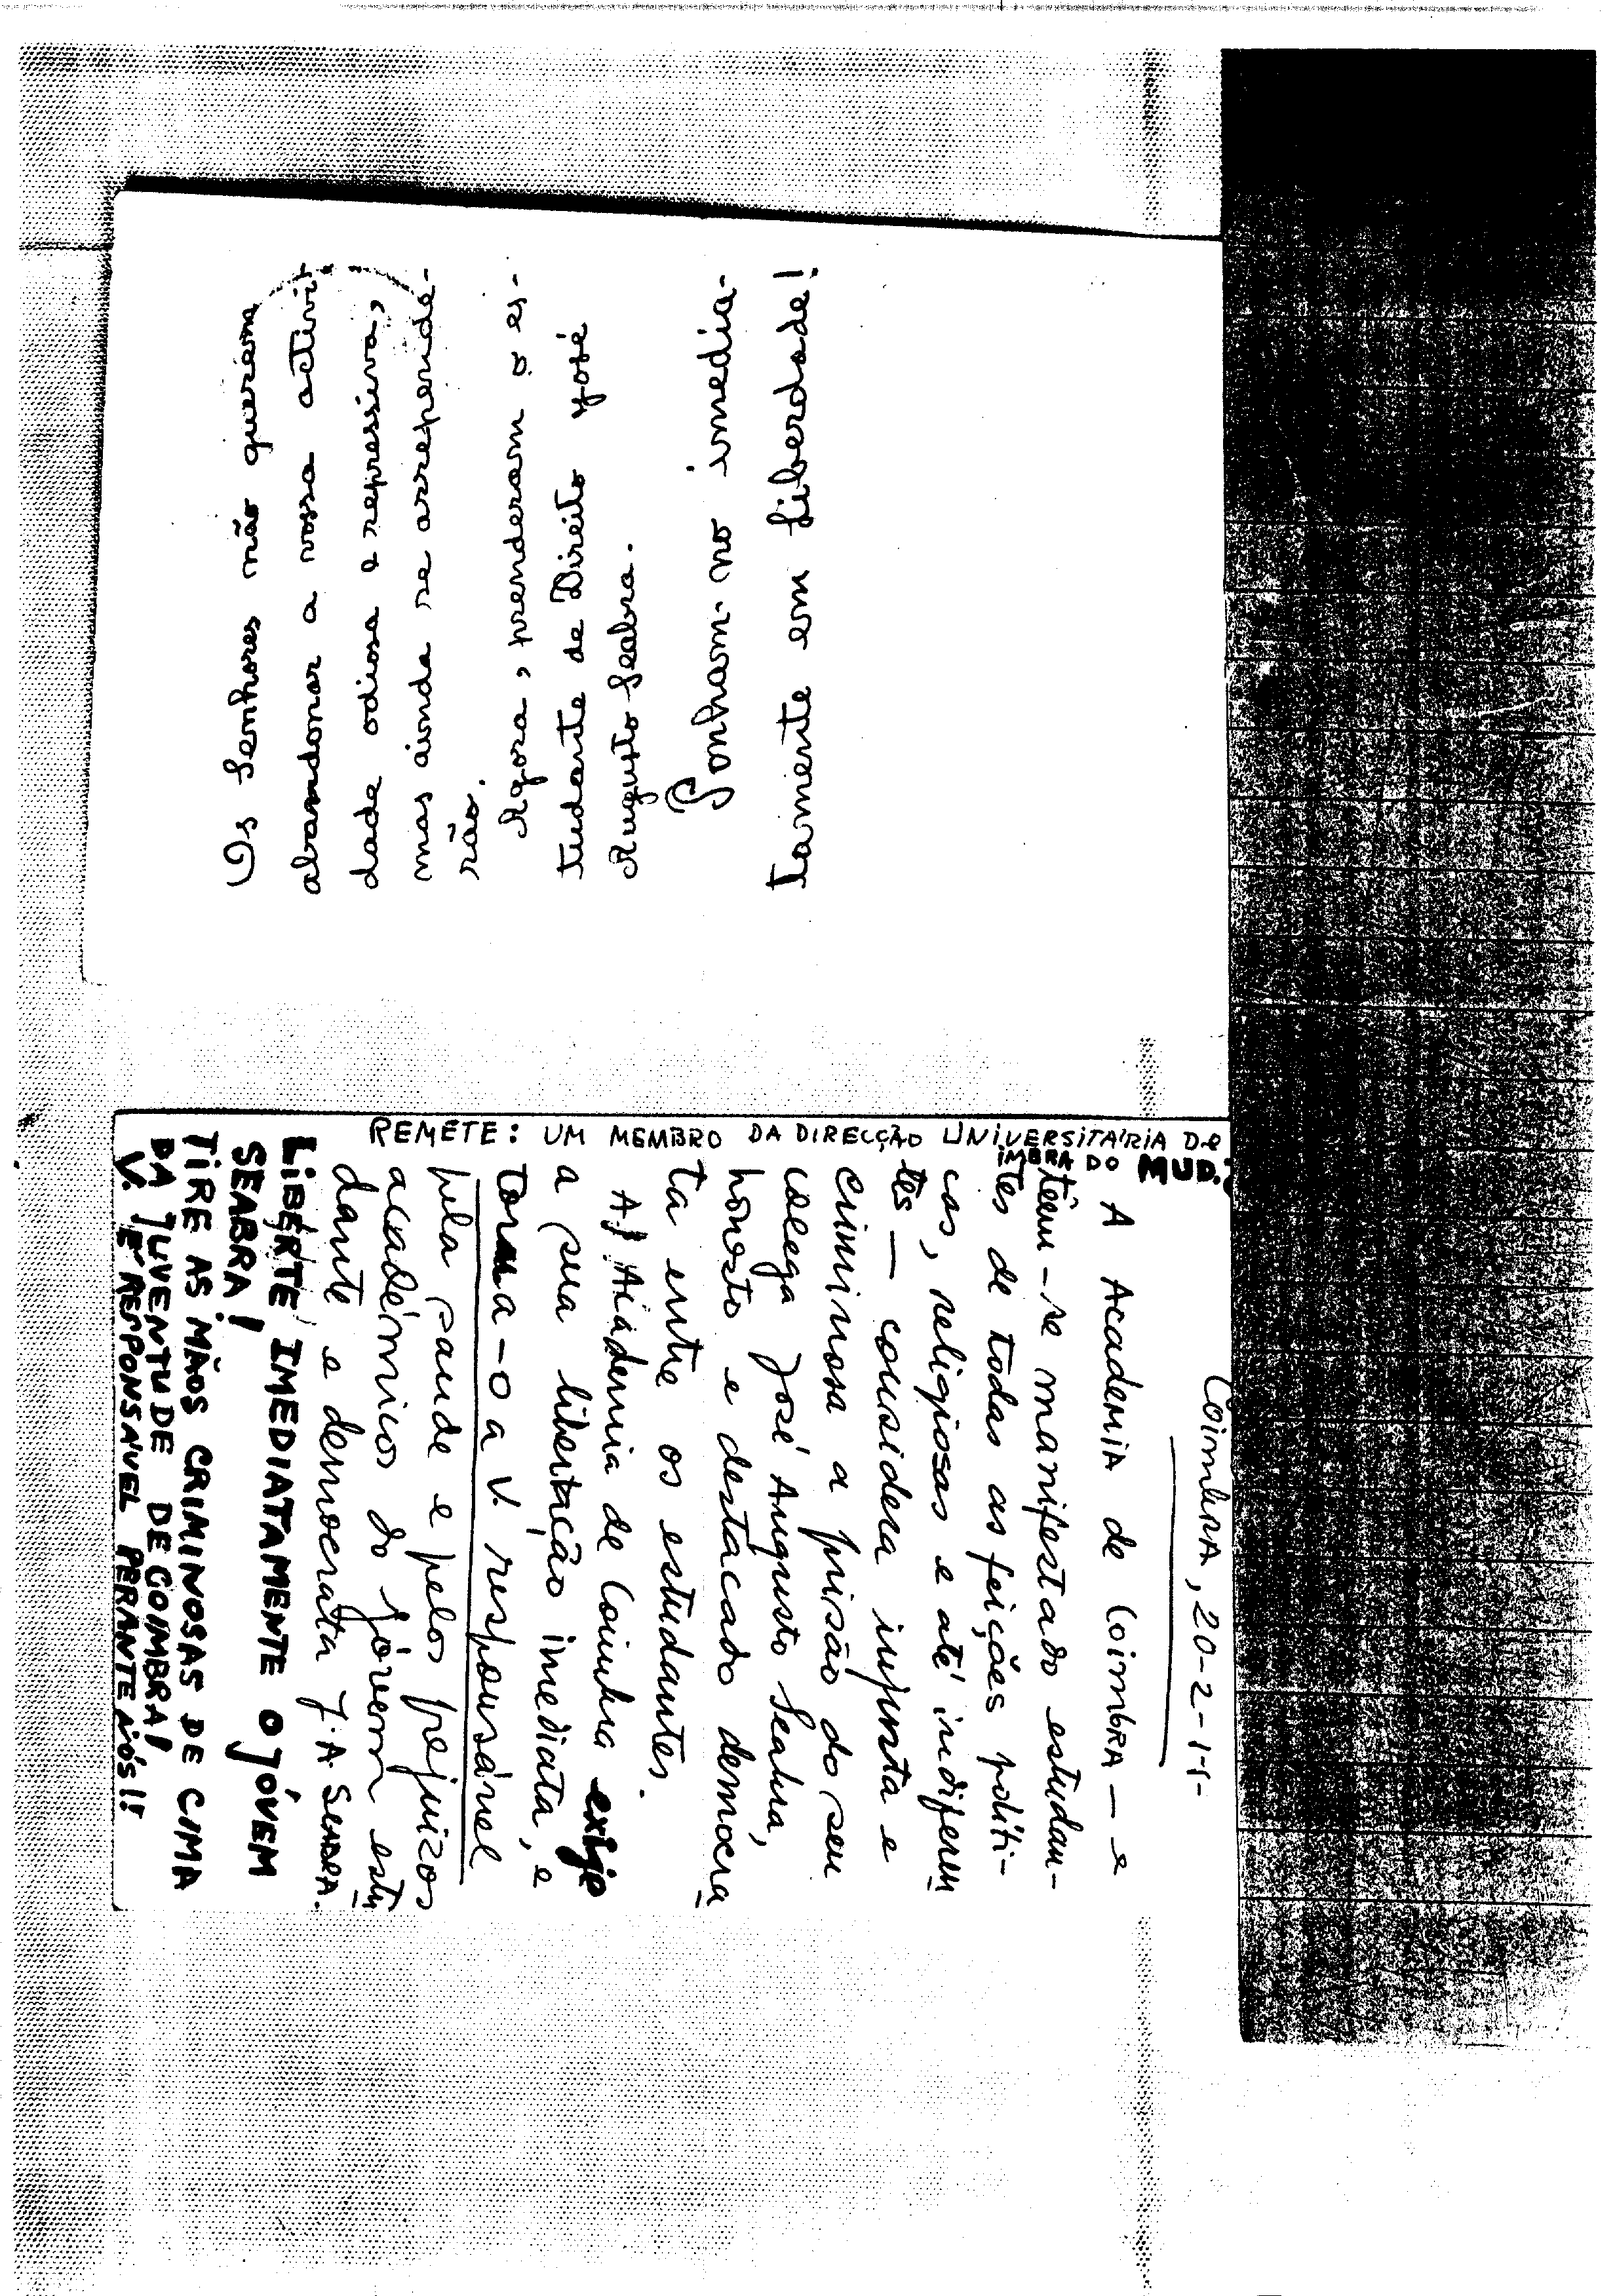 Os Senhores não querem
abandonar a vossa activi-
dade odiosa e repressiva,
mas ainda se arrepende-
rão.
Agora, prenderam o es-
tudante de Direito José
Augusto Seabra.
Ponham-no imedia-
tamente em liberdade!
REMETE: UM MEMBRO DA DIRECÇÃO UNIVERSITÁRIA DE
IMBRA DO MUD.J
Coimbra, 20-2-
A Academia de Coimbra — e
têem-se manifestado estudan-
tes de todas as feições políti-
cas, religiosas e até indiferen
tes — considera injusta e
criminosa a prisão do seu
colega José Augusto Seabra,
honesto e destacado democra
ta entre os estudantes.
A Academia de Coimbra exige
a sua libertação imediata, e
torna-o a V. responsável
pela saude e pelos prejuizos
académicos do jóvem estu
dante e democrata J. A. SEABRA.
LIBERTE IMEDIATAMENTE O JÓVEM
SEABRA!
TIRE AS MÃOS CRIMINOSAS DE CIMA
DA JUVENTUDE DE COIMBRA!
V. É RESPONSÁVEL PERANTE NÓS!!